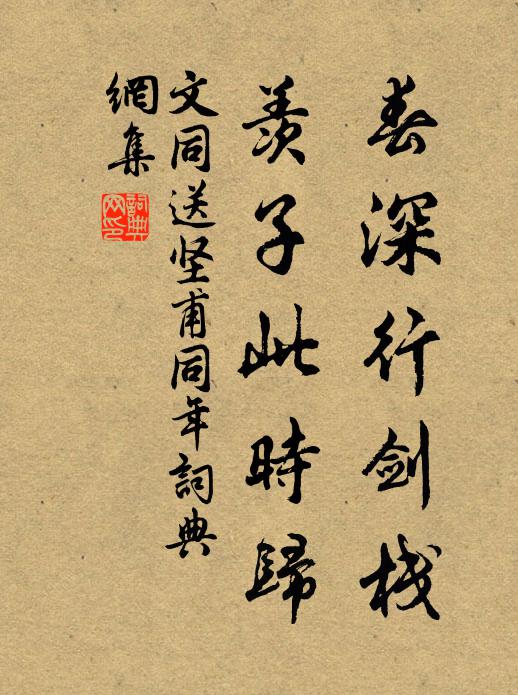 春深行剑栈
羡子此時歸
文同送坚甫同年詞典
網集
詞典
网印